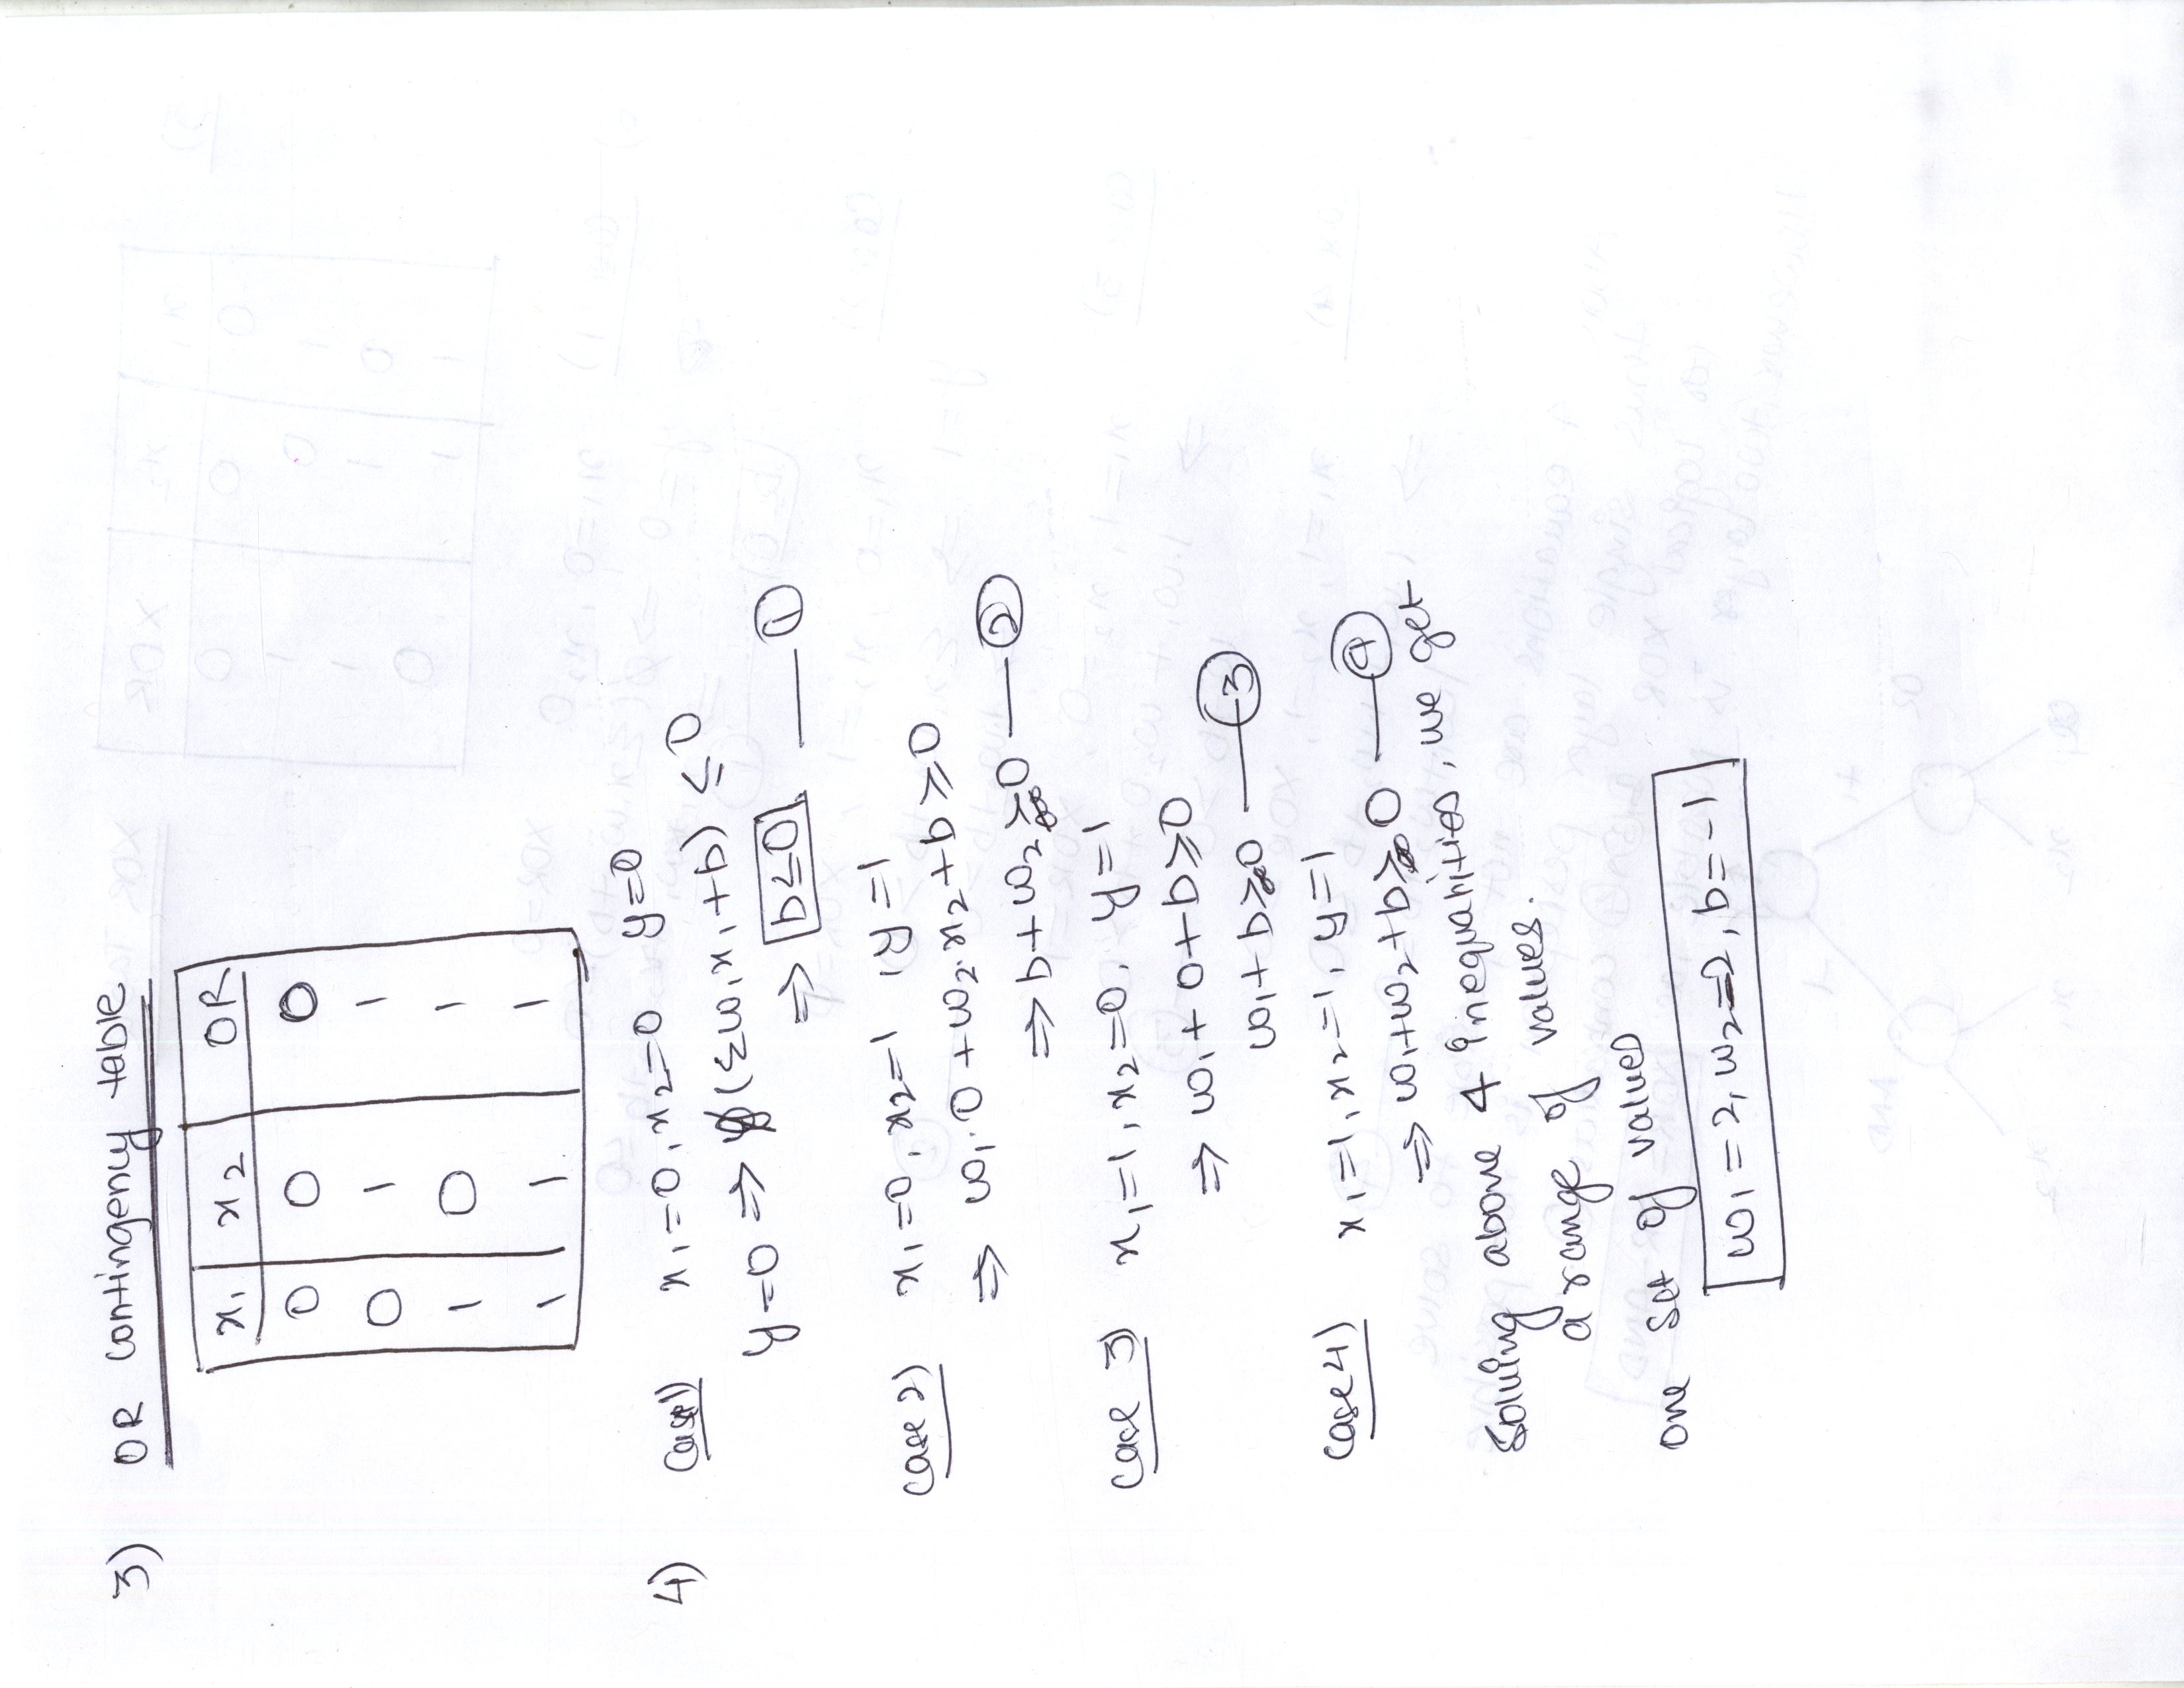 3) OR contingeny table
x1 x2 OR
0 0 0
0 1 1
1 0 1
1 1 1
4) Case 1) x1=0, x2=0 y=0
y=0 ⇒ (Σw1x1+b) ≤ 0
⇒ b≤0 — ①
Case 2) x1=0, x2=1 , y=1
⇒ w1.0 + w2.x2 + b ≥ 0
⇒ b + w2 ≥ 0 — ②
Case 3) x1=1, x2=0, y=1
⇒ w1 + 0 + b ≥ 0
w1 + b ≥ 0 — ③
Case 4) x1=1, x2=1, y=1
⇒ w1+w2+b ≥ 0 — ④
Solving above 4 inequalities, we get
a range of values.
one set of values
w1=2, w2=2, b=-1